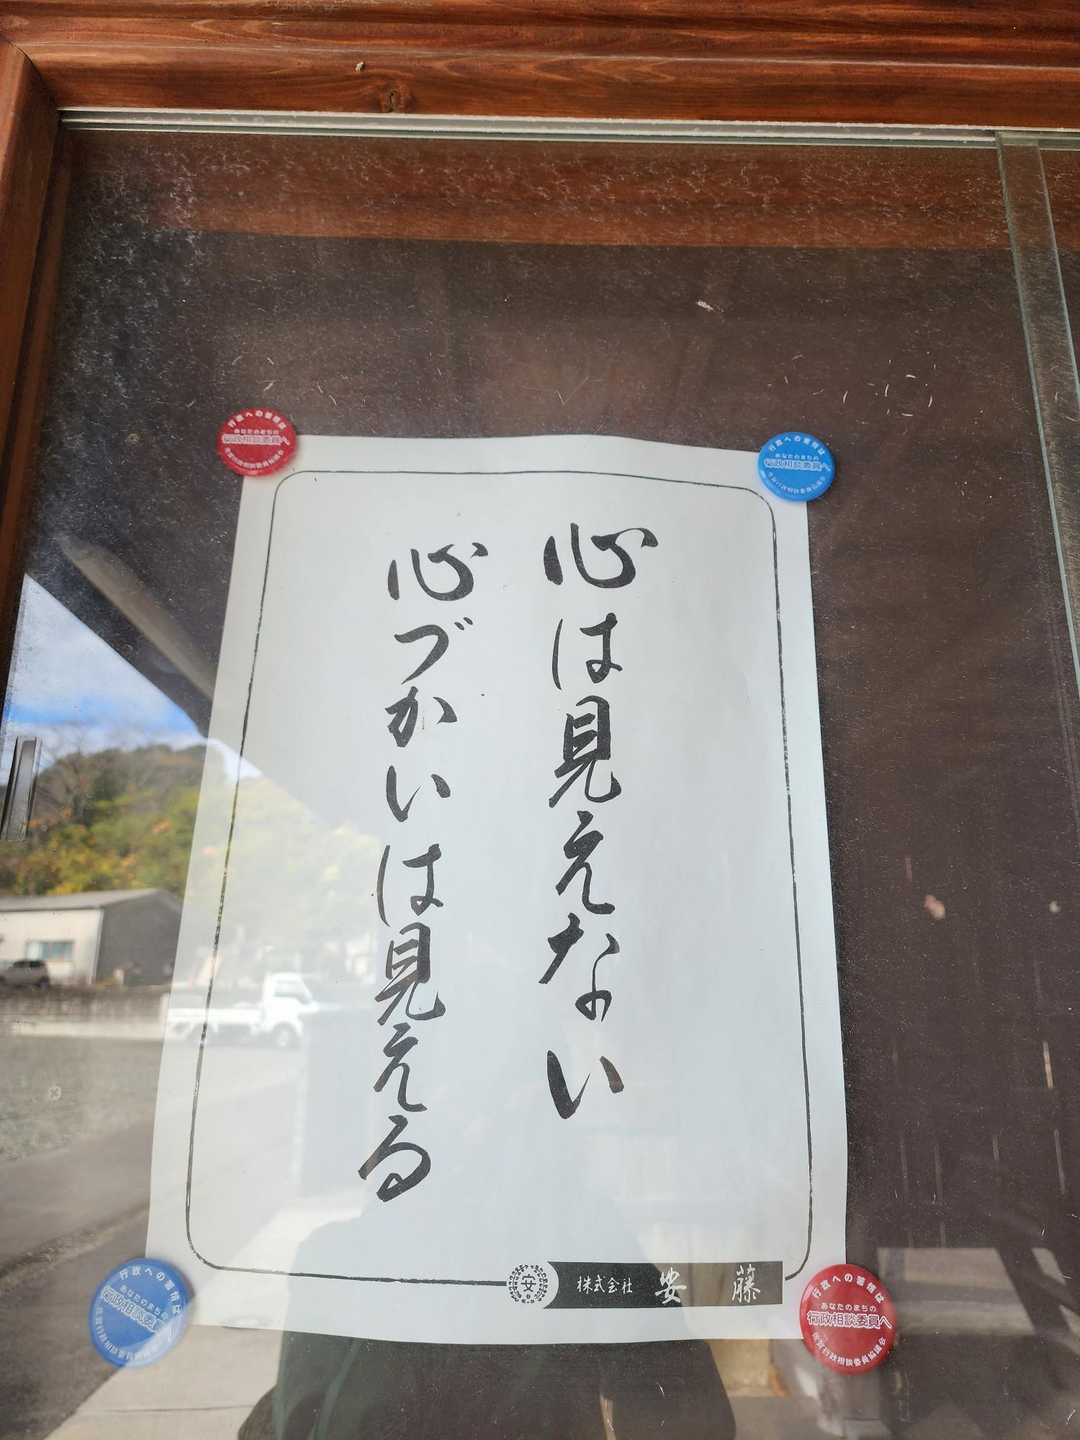 心は見えない
心づかいは見える
安
株式会社 安藤
行政への苦情は
あなたのまちの
行政相談委員へ
行政への苦情は
あなたのまちの
行政相談委員へ
行政への苦情は
あなたのまちの
行政相談委員へ
行政への苦情は
あなたのまちの
行政相談委員へ